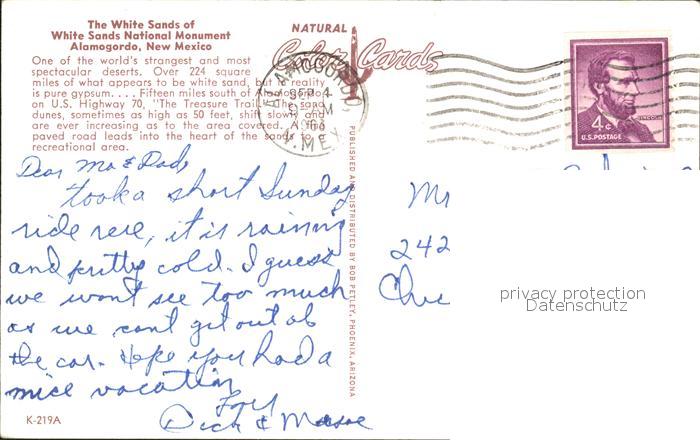 The White Sands of
White Sands National Monument
Alamogordo, New Mexico
One of the world's strangest and most
spectacular deserts. Over 224 square
miles of what appears to be white sand, but in reality
is pure gypsum. . . . Fifteen miles south of Alamogordo
on U.S. Highway 70, "The Treasure Trail." The sand
dunes, sometimes as high as 50 feet, shift slowly and
are ever increasing as to the area covered. A
paved road leads into the heart of the sands to
recreational area.
NATURAL
Color Cards
ALAMOGORDO
SEP 4
N. MEX.
LINCOLN
4¢
U.S. POSTAGE
PUBLISHED AND DISTRIBUTED BY BOB PETLEY, PHOENIX, ARIZONA
Dear Mo & Dad,
took a short Sunday
ride here, it is raining
and pretty cold. I guess
we wont see too much
as we cant get out of
the car. Hope you had a
nice vacation
Dick &
Mr
242
Chic
privacy protection
Datenschutz
K-219A